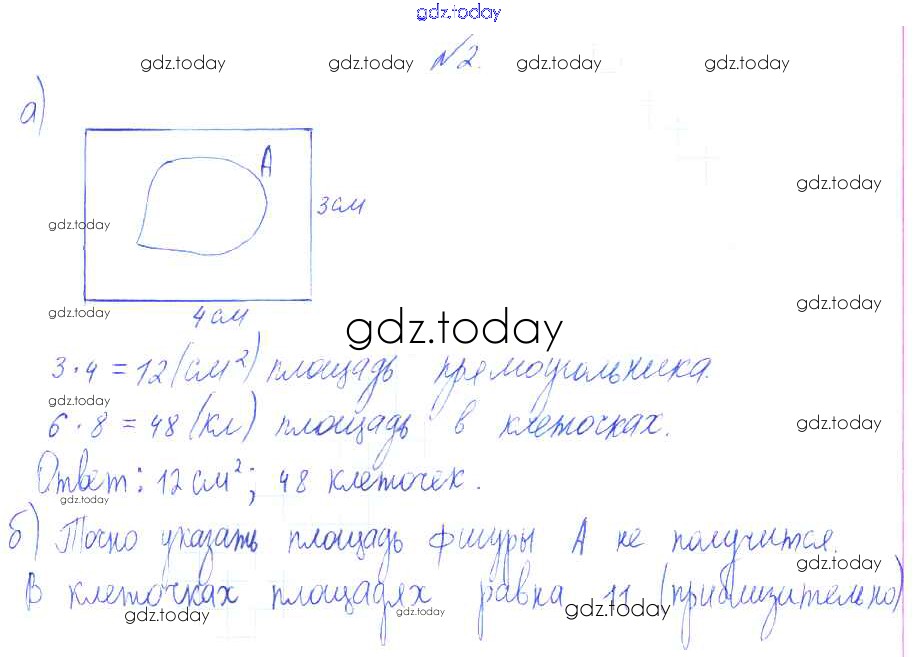 gdz.today
№2.
gdz.today gdz.today gdz.today gdz.today
а)
A
gdz.today
3см
gdz.today
gdz.today
4см
gdz.today
gdz.today
3·4=12(см²) площадь прямоугольника.
gdz.today
6·8=48(кл) площадь в клеточках.
gdz.today
Ответ: 12см²; 48 клеточек.
gdz.today
б) Точно указать площадь фигуры А не получится.
gdz.today
В клеточках площадях равна 11 (приблизительно)
gdz.today gdz.today gdz.today